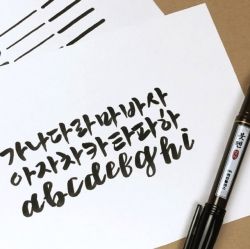 가나다라마바사
아자차카타파하
abcdefghi
붓펜